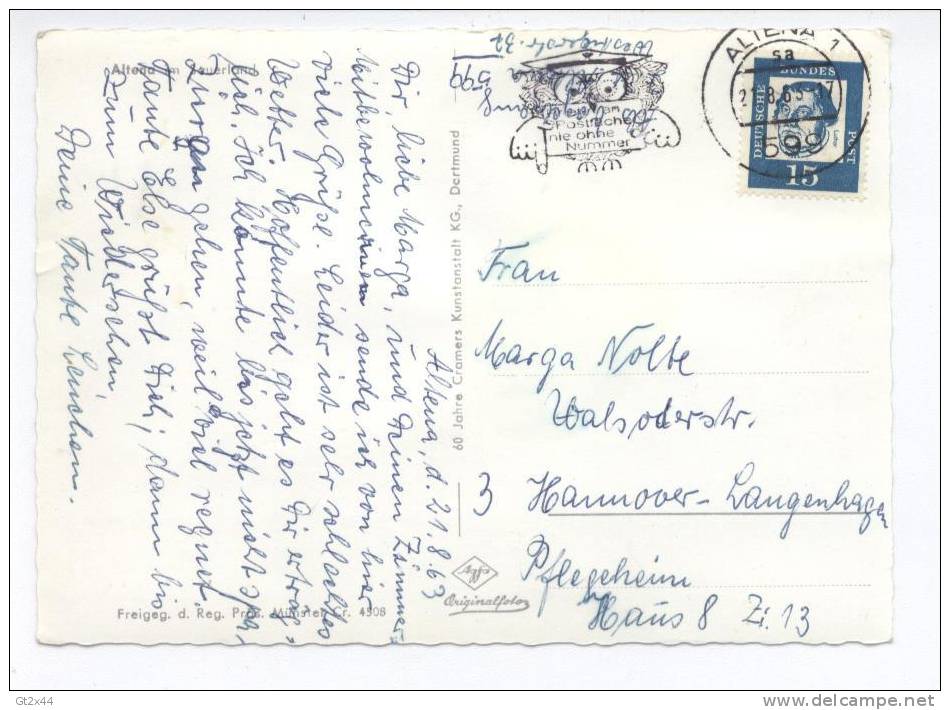 Altena im Sauerland
Altena, d. 21.8.63
Dir, liebe Marga, und Deinen Zimmer-
mitbewohnerinnen sende ich von hier
viele Grüße. Leider ist sehr schlechtes
Wetter. Hoffentlich geht es Dir erträg-
lich. Ich konnte bis jetzt nicht so
gehen, weil viel regnet.
Tante Else grüßt Dich, dann bis
zum Wiedersehen,
Deine Tante Lenchen.
Freigeg. d. Reg. Präs. Münster Cr. 4508
60 Jahre Cramers Kunstanstalt KG., Dortmund
Agfa
Originalfoto
599
Postfächer
nie ohne
Nummer
ALTENA 1
sa
21.8.63-17
599
DEUTSCHE
BUNDES
POST
15
Frau
Marga Nolte
Walsoderstr.
3 Hannover-Langenhagen
Pflegeheim
Haus 8 Zi. 13
Gt2x44
delcampe.net